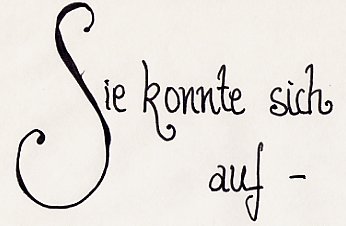 Sie konnte sich
auf -